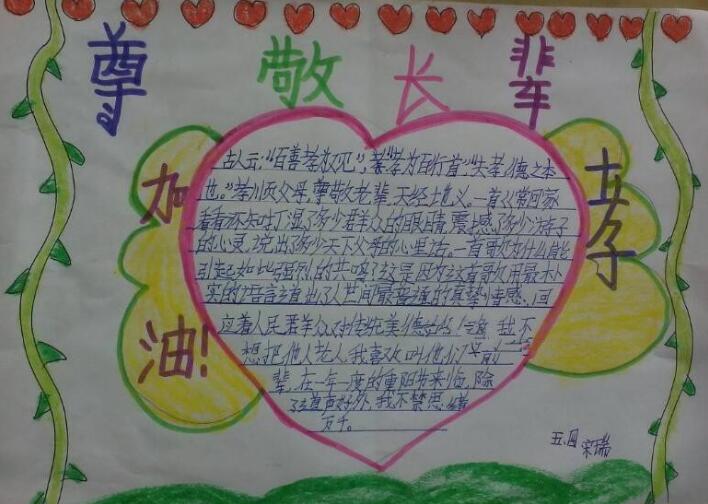 尊敬长辈
加油!
古人云:"百善孝为先","孝为百行首","夫孝德之本
也。"孝顺父母,尊敬老辈,天经地义。一首《常回家
看看》不知打湿了多少君羊众的眼睛,震撼了多少游子
的心灵,说出了多少天下父母的心里话。一首歌为什么能
引起如此强烈的共鸣?这是因为这首歌用最朴
实的语言道出了人世间最普通的真挚情感,回
应着人民君羊众对传统美德的 我不
想把他人老人,我喜欢叫他们"前
辈,在一年一度的重阳节来临,除
了道声好外,我不禁思绪
万千。
孝
五.四 宋瑞